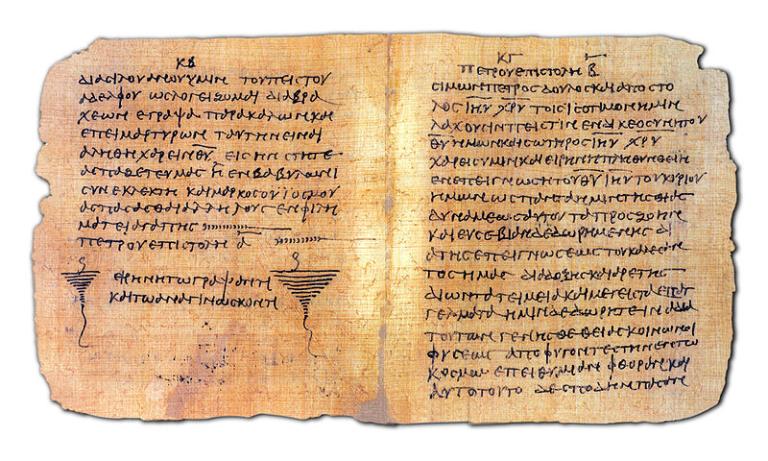 ΚΒ
διασιλουανουυμιν τουπειστου
αδελφου ωσλογειζωμαι διαβρα
χεων εγραψα παρακαλωνκαι
επειμαρτυρων ταυτηνειναι
αληθηχαρειν θ̅υ̅ εισηνστητε
ασπαζετευμασ η ενβαβυλωνι
συνεκλεκτη καιμαρκοσουιοσμου
ασπασασθαιαλληλουσ ενφιλη
ματειαγαπησ
πετρουεπιστολη α̅
ειρηνητωγραψαντι
καιτωαναγινωσκοντι
ΚΓ
πετρουεπιστολη β̅
σιμωνπετροσδουλοσκαιαποστο
λοσ ι̅η̅υ̅ χ̅ρ̅υ̅ τοισισοτιμονημιν
λαχουσινπειστιν ενδικεοσυνητου
θ̅υ̅ ημωνκαισωτηροσ ι̅η̅υ̅ χ̅ρ̅υ̅
χαρεισυμινκαιειρηνηπληθυνθειη
ενεπειγνωσητου θ̅υ̅ ι̅η̅υ̅ τουκυριου
ημωνωσπανταημιντησθειασ
δυναμεωσαυτουταπροσζωην
καιευσεβιανδεδωρημενησ δι
ατησεπειγνωσεωστουκαλεσαν
τοσημασ διαδοξησκαιαρετησ
διωντατειμειακαιμεγεισταεπαγ
γελματαημινδεδωρητειναδια
τουτωνγενησθεθειασκοινωνοι
φυσεωσ αποφυγοντεστηνεντω
κοσμωεπειθυμιανφθορασκαι
αυτοτουτο δεσπουδηνπασαν